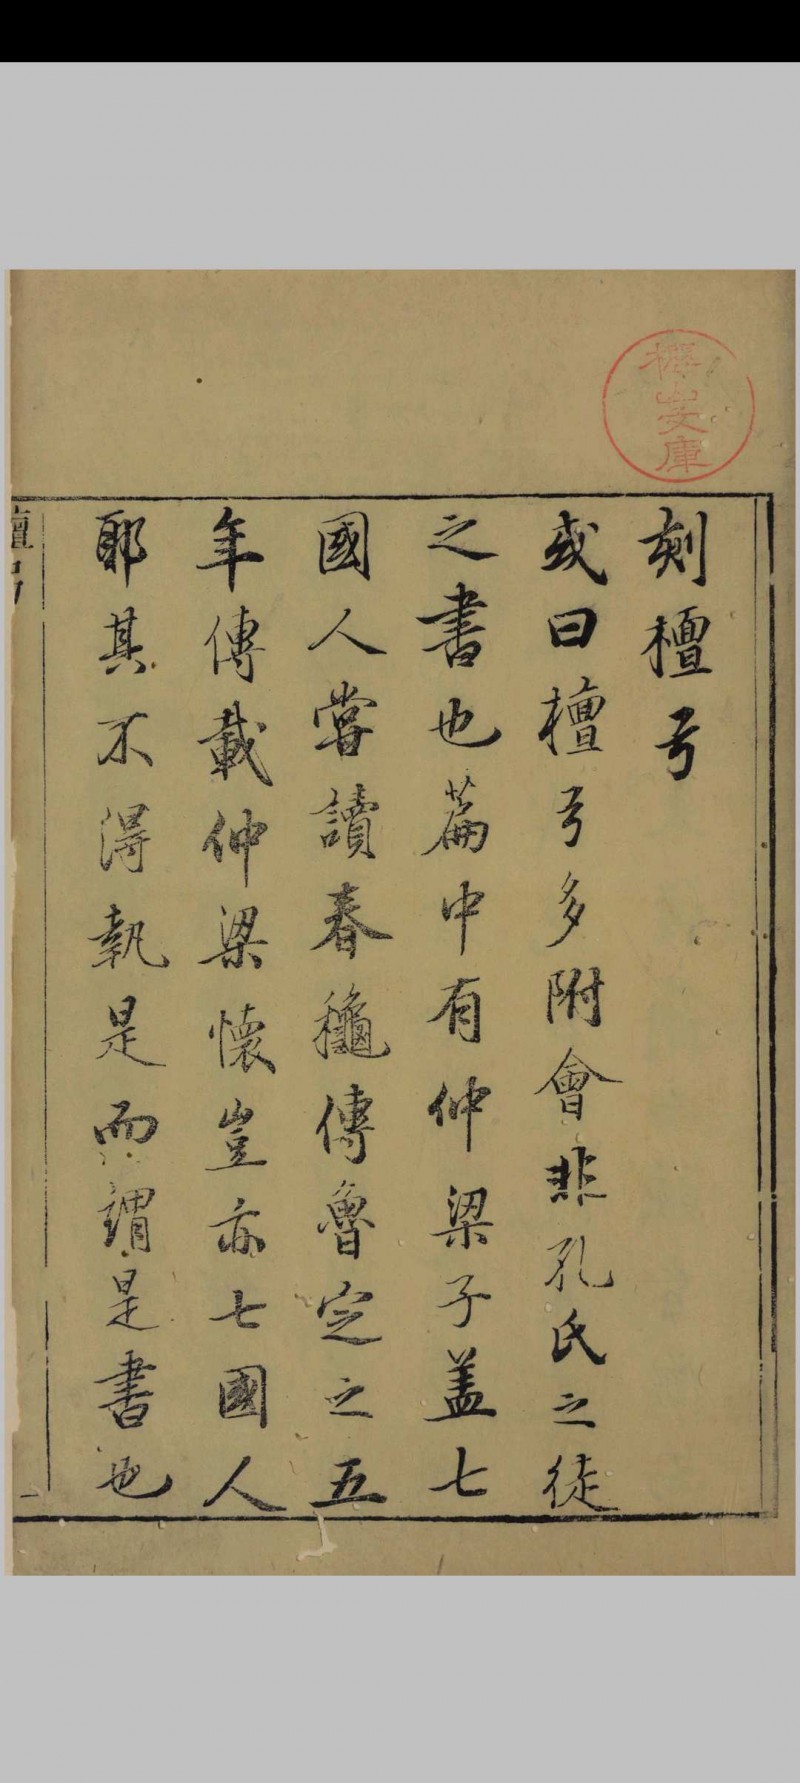 刻檀弓
或曰檀弓多附會非孔氏之徒
之書也篇中有仲梁子盖七
國人嘗讀春龝傳魯定之五
年傳載仲梁懷豈亦七國人
耶其不得執是而謂是書也
檀弓
一
山文庫